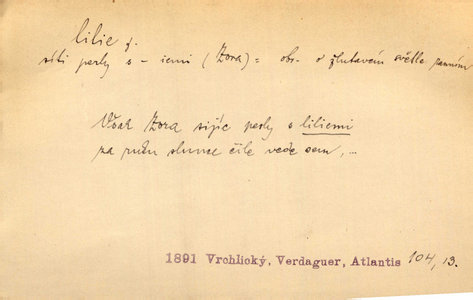 lilie f.
síti perly s – iemi (Zora) = obr. o žlutavém světle ranním
Však Zora sijíc perly s liliemi
za ruku slunce čile vede sem,...
1891 Vrchlický, Verdaguer, Atlantis 104, 13.